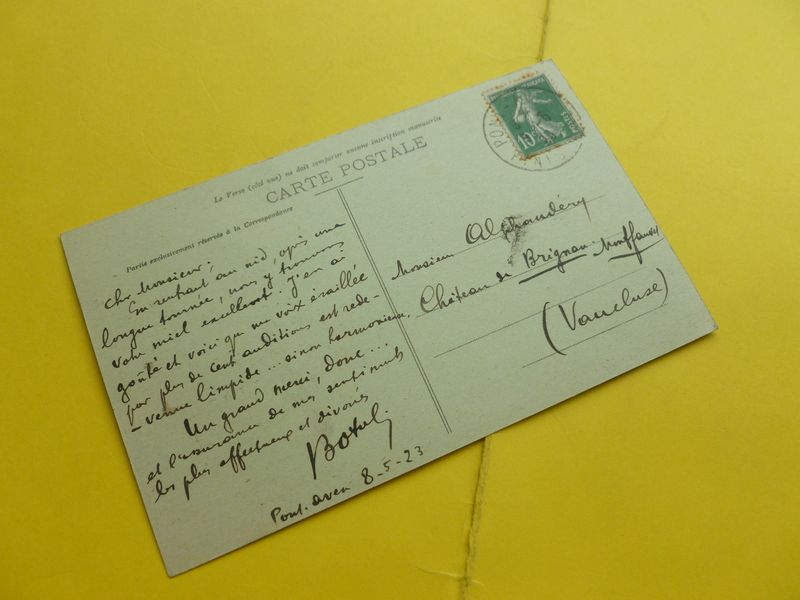 Le Verso (côté vue) ne doit comporter aucune inscription manuscrite
CARTE POSTALE
Partie exclusivement réservée à la Correspondance
Cher Monsieur,
En rentrant au nid, après une
longue tournée, nous y trouvons
votre miel excellent. J'en ai
goûté et voici que ma voix éraillée
par plus de cent auditions est rede-
-venue limpide... sinon harmonieuse,
Un grand merci, donc...
et l'assurance de mes sentiments
les plus affectueux et dévoués
Botrel.
Pont-aven 8-5-23
10c
PON
Monsieur Alphandéry
Château de Brignan. Montfavet
(Vaucluse)